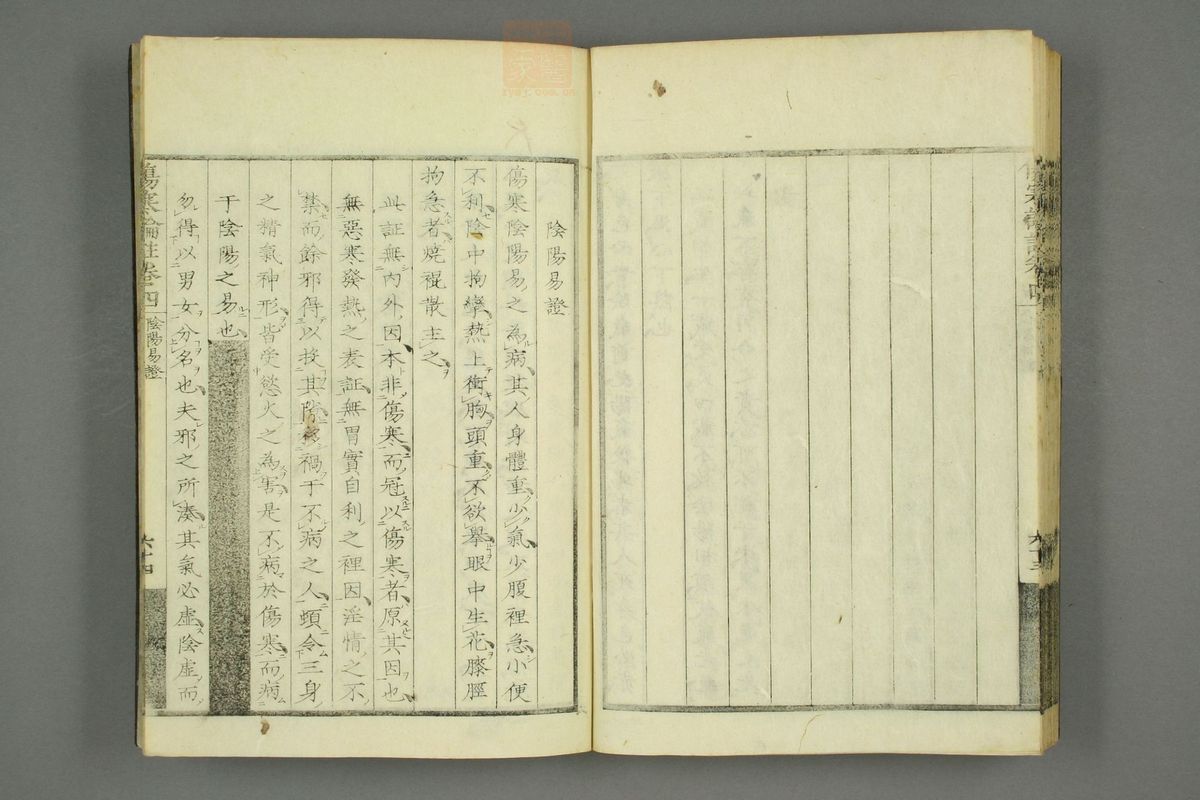 陰陽易證
傷寒陰陽易之為病其人身體重少氣少腹裡急小便
不利陰中拘攣熱上衝胸頭重不欲舉眼中生花膝脛
拘急者燒裩散主之
此証無內外因本非傷寒而冠以傷寒者原其因也
無惡寒發熱之表証無胃實自利之裡因淫情之不
禁而餘邪得以投其隙移禍于不病之人頓令三身
之精氣神形皆受慾火之為害是不病於傷寒而病
于陰陽之易也
勿得以男女分名也夫邪之所湊其氣必虛陰虛而
傷寒論註卷之四 陰陽易證
六十四
六十三